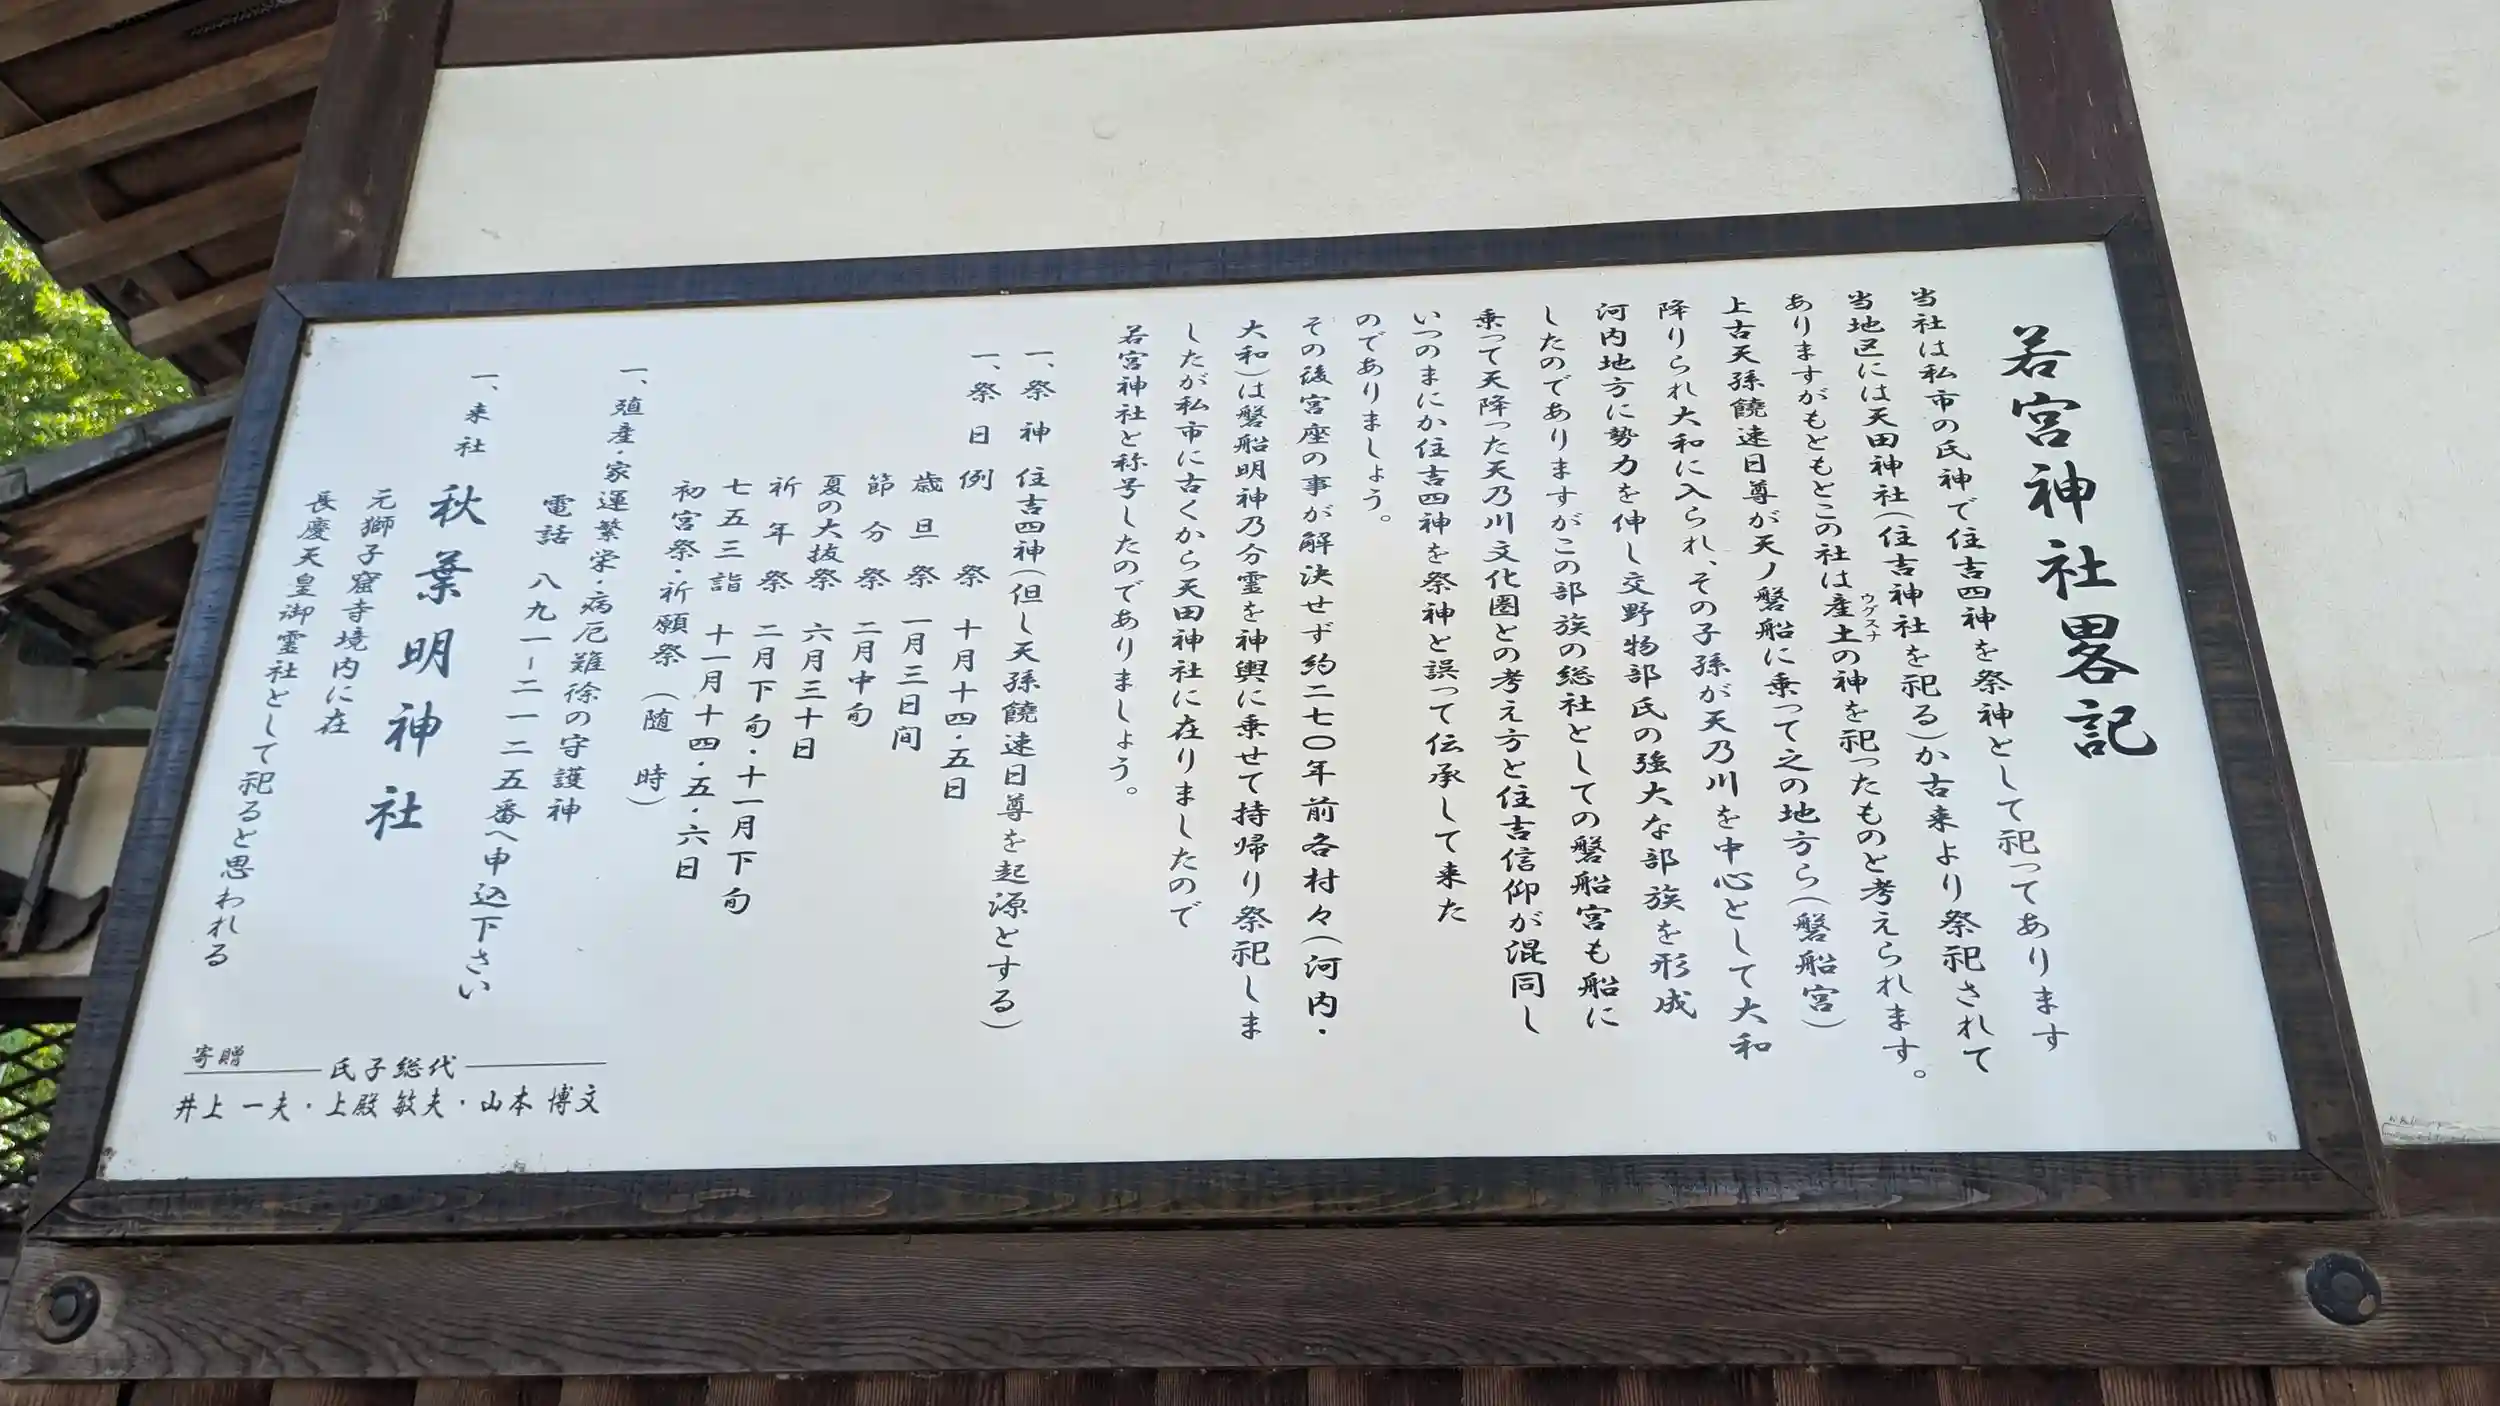 若宮神社畧記
当社は私市の氏神で住吉四神を祭神として祀ってあります
当地区には天田神社(住吉神社を祀る)か古来より祭祀されて
ありますがもともとこの社は産土の神を祀ったものと考えられます。
ウグスナ
上古天孫饒速日尊が天ノ磐船に乗って之の地方ら(磐船宮)
降りられ大和に入られ、その子孫が天乃川を中心として大和
河内地方に勢力を伸し交野物部氏の強大な部族を形成
したのでありますがこの部族の総社としての磐船宮も船に
乗って天降った天乃川文化圏との考え方と住吉信仰が混同し
いつのまにか住吉四神を祭神と誤って伝承して来た
のでありましょう。
その後宮座の事が解決せず約二七〇年前各村々(河内・
大和)は磐船明神乃分霊を神輿に乗せて持帰り祭祀しま
したが私市に古くから天田神社に在りましたので
若宮神社と称号したのでありましょう。
一、祭神 住吉四神(但し天孫饒速日尊を起源とする)
一、祭日 例祭 十月十四・五日
歳旦祭 一月三日間
節分祭 二月中旬
夏の大抜祭 六月三十日
祈年祭 二月下旬・十一月下旬
七五三詣 十一月十四・五・六日
初宮祭・祈願祭(随時)
一、殖産・家運繁栄・病厄難徐の守護神
電話 八九一-二一二五番へ申込下さい
一、来社 秋葉明神社
元獅子窟寺境内に在
長慶天皇御霊社として祀ると思われる
寄贈 氏子総代
井上 一夫・上殿 敏夫・山本 博文